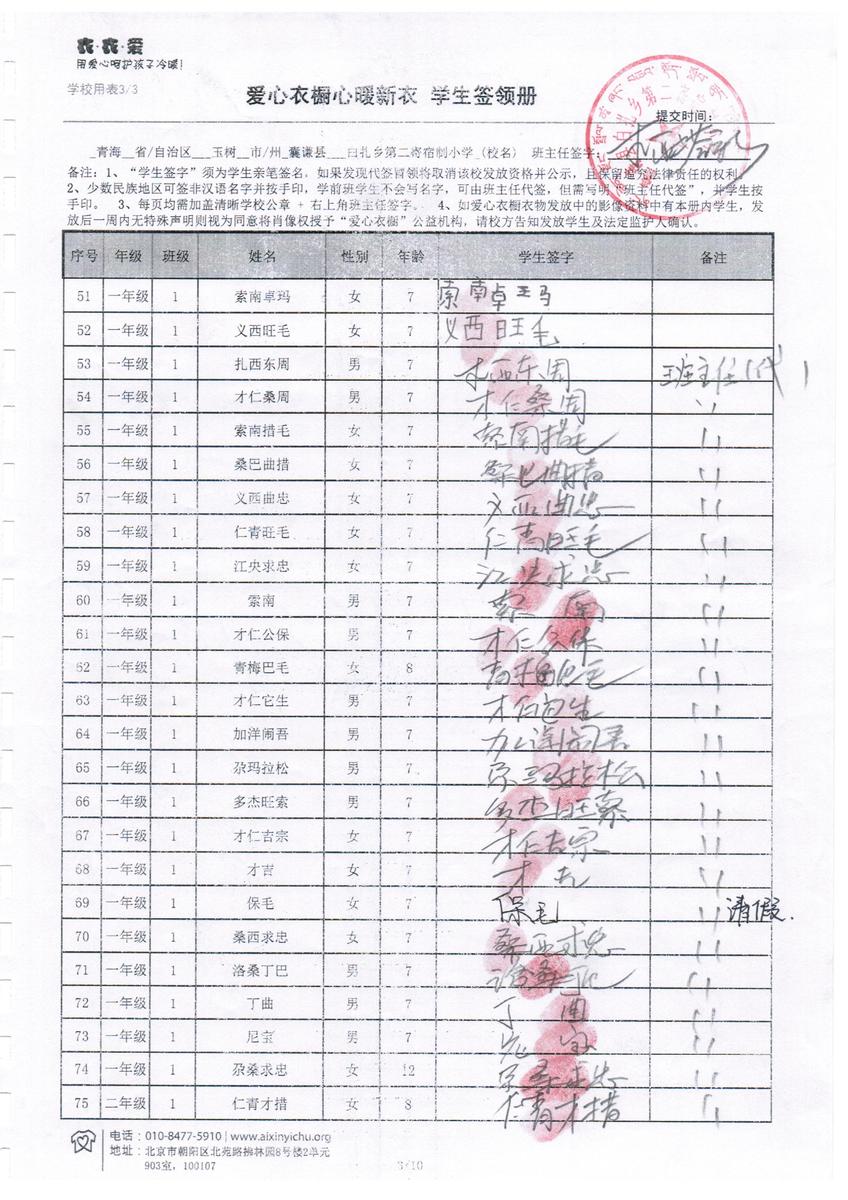 衣·衣·爱
用爱心呵护孩子冷暖!
学校用表3/3
爱心衣橱心暖新衣 学生签领册
提交时间:
青海 省/自治区 玉树 市/州 囊谦县 白扎乡第二寄宿制小学 (校名) 班主任签字:
备注:1、“学生签字”须为学生亲笔签名。如果发现代签冒领将取消该校发放资格并公示,且保留追究法律责任的权利。
2、少数民族地区可签非汉语名字并按手印,学前班学生不会写名字,可由班主任代签,但需写明“班主任代签”,并学生按
手印。 3、每页均需加盖清晰学校公章 + 右上角班主任签字。 4、如爱心衣橱衣物发放中的影像资料中有本册内学生,发
放后一周内无特殊声明则视为同意将肖像权授予“爱心衣橱”公益机构,请校方告知发放学生及法定监护人确认。
序号 年级 班级 姓名 性别 年龄 学生签字 备注
51 一年级 1 索南卓玛 女 7 索南卓玛
52 一年级 1 义西旺毛 女 7 义西旺毛
53 一年级 1 扎西东周 男 7 扎西东周 班主任(代)
54 一年级 1 才仁桑周 男 7 才仁桑周 〃
55 一年级 1 索南措毛 女 7 索南措毛 〃
56 一年级 1 桑巴曲措 女 7 桑巴曲措 〃
57 一年级 1 义西曲忠 女 7 义西曲忠 〃
58 一年级 1 仁青旺毛 女 7 仁青旺毛 〃
59 一年级 1 江央求忠 女 7 江央求忠 〃
60 一年级 1 索南 男 7 索南 〃
61 一年级 1 才仁公保 男 7 才仁公保 〃
62 一年级 1 青梅巴毛 女 8 青梅巴毛 〃
63 一年级 1 才仁它生 男 7 〃
64 一年级 1 加洋闹吾 男 7 加洋闹吾 〃
65 一年级 1 尕玛拉松 男 7 尕玛拉松 〃
66 一年级 1 多杰旺索 男 7 多杰旺索 〃
67 一年级 1 才仁吉宗 女 7 才仁吉宗 〃
68 一年级 1 才吉 女 7 才吉 〃
69 一年级 1 保毛 女 7 保毛 〃 请假.
70 一年级 1 桑西求忠 女 7 桑西求忠 〃
71 一年级 1 洛桑丁巴 男 7 洛桑丁巴 〃
72 一年级 1 丁曲 男 7 丁曲 〃
73 一年级 1 尼宝 男 7 尼宝 〃
74 一年级 1 尕桑求忠 女 12 尕桑求忠 〃
75 二年级 1 仁青才措 女 8 仁青才措 〃
电话:010-8477-5910 | www.aixinyichu.org
地址:北京市朝阳区北苑路拂林园8号楼2单元
903室,100107
3/10